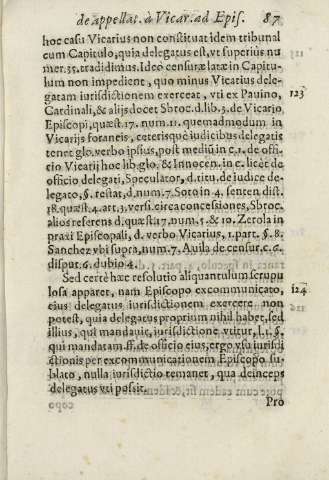 de appellat. à Vicar. ad Epis. 87
hoc casu Vicarius non constituat idem tribunal
cum Capitulo, quia delegatus est, vt superius nu
mer. 35. tradidimus. Ideo censuræ latæ in Capitu-
lum non impedient, quo minus Vicarius dele-
gatam iurisdictionem exerceat, vti ex Pauino, 123
Cardinali, & alijs docet Sbroc. d. lib. 3. de Vicario
Episcopi, quæst. 17. num. 11. quemadmodum in
Vicarijs foraneis, ceterisquè iudicibus delegatis
tenet glo. verbo ipsius, post mediũ in c. 1. de offi-
cio Vicarij hoc lib. glo. & Innocen. in c. licèt de
officio delegati, Speculator, d. titu. de iudice de-
legato, §. restat, d. num. 7. Soto in 4. senten. dist.
18. quæst. 4. art. 3. versi. circa concessiones, Sbroc.
alios referens d. quæsti 17. num. 5. & 10. Zerola in
praxi Episcopali, d. verbo Vicarius, 1. part. §. 8.
Sanchez vbi supra, num. 7. Auila de censur. c. 2.
disput. 6. dubio 4.
Sed certè hæc resolutio aliquantulum scrupu
losa apparet, nam Episcopo excommunicato, 124
eius delegatus iurisdictionem exercere non
potest, quia delegatus proprium nihil habet, sed
illius, qui mandauit, iurisdictione vtitur, l. 1. §.
qui mandatam ff. de officio eius, ergo vsu iurisdi
ctionis per excommunicationem Episcopo su-
blato, nulla iurisdictio remanet, qua deinceps
delegatus vti possit.
Pro